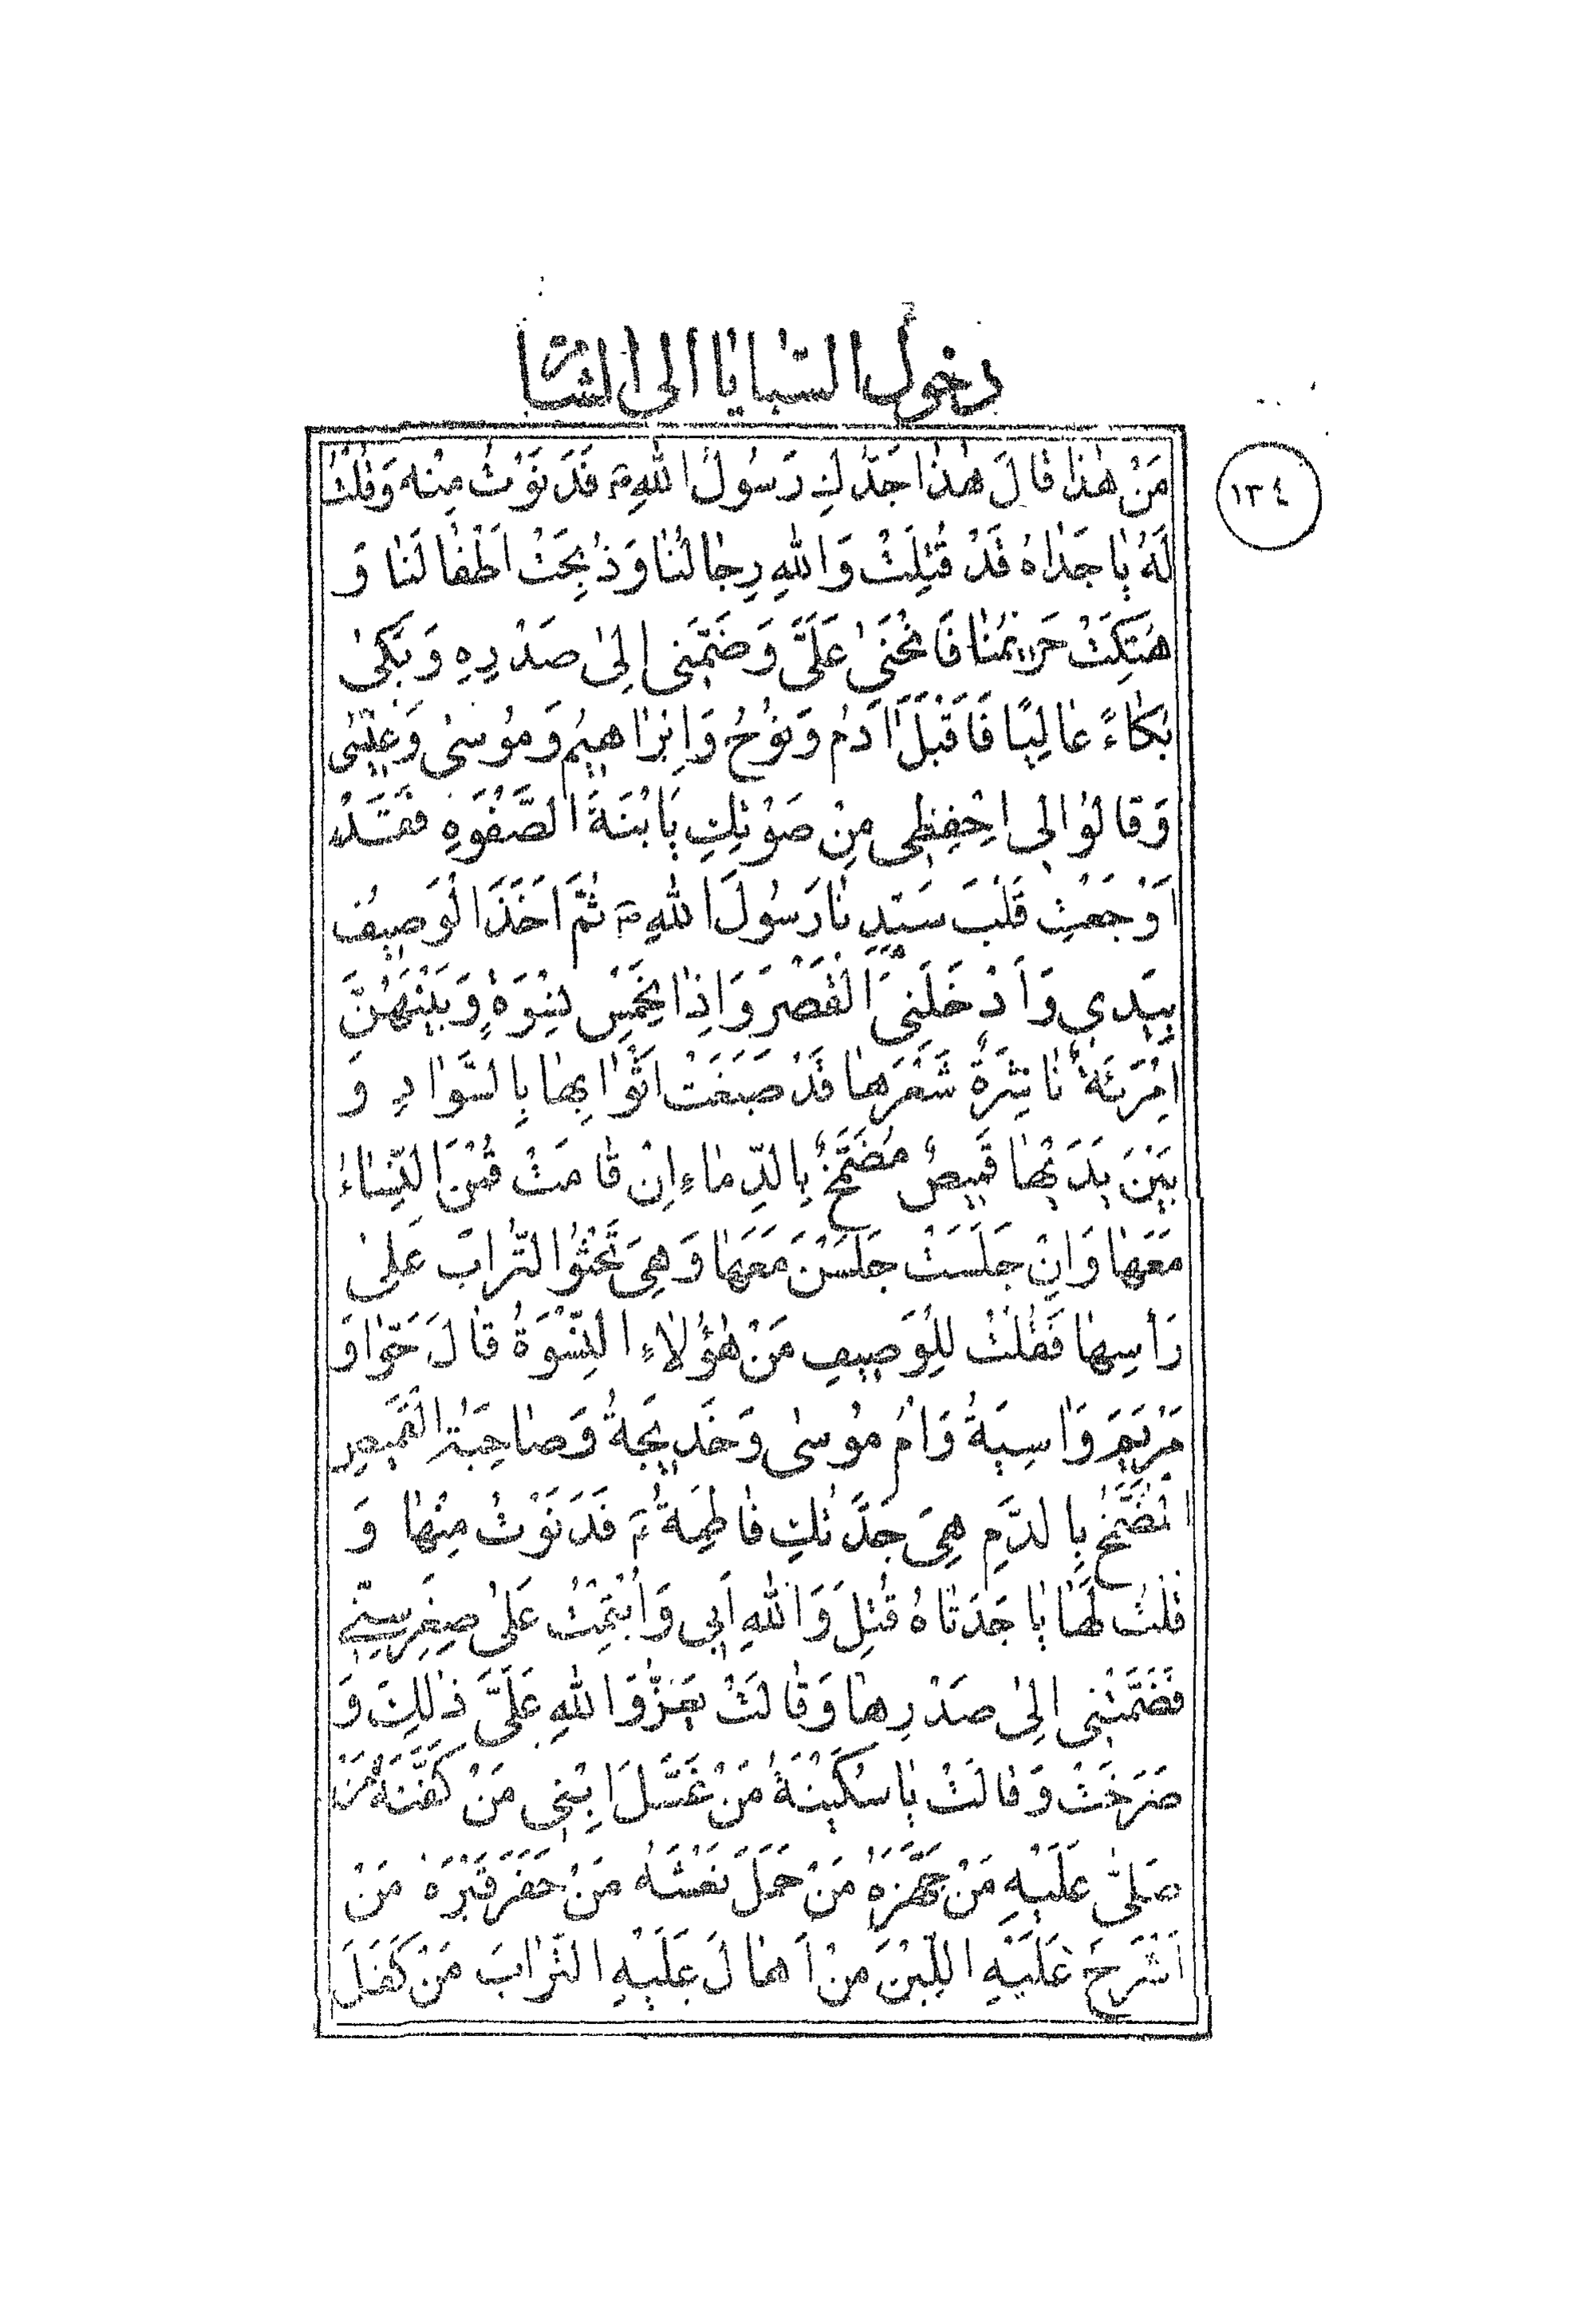 دخول السبايا الى الشام
١٣٤
مَنْ هٰذا قالَ هٰذا جَدُّكِ رَسُولُ اللهِ ص فَدَنَوْتُ مِنْهُ وَقُلْتُ
لَهُ يا جَدّاهُ قَدْ قُتِلَتْ وَاللهِ رِجالُنا وَذُبِحَتْ اَطْفالُنا وَ
هُتِكَتْ حَريمُنا فَانْحَنىٰ عَلَيَّ وَضَمَّني اِلىٰ صَدْرِهِ وَبَكىٰ
بُكاءً عالِيًا فَاَقْبَلَ اٰدَمُ وَنُوْحُ وَاِبْراهيمُ وَمُوسىٰ وَعيسىٰ
وَقالُوا لي اِحْفِظي مِنْ صَوْتِكِ يَابْنَةَ الصَّفْوَةِ فَقَدْ
اَوْجَعْتِ قَلْبَ سَيِّدِنا رَسُولَ اللهِ ص ثُمَّ اَخَذَ الْوَصيفُ
بِيَدي وَاَدْخَلَني الْقَصْرَ وَاِذا بِخَمْسِ نِسْوَةٍ وَبَيْنَهُنَّ
اِمْرَئَةٌ ناشِرَةٌ شَعْرَها قَدْ صَبَغَتْ اَثْوابَها بِالسَّوادِ وَ
بَيْنَ يَدَيْها قَميصٌ مُضَمَّخٌ بِالدِّماءِ اِنْ قامَتْ قُمْنَ النِّساءُ
مَعَها وَاِنْ جَلَسَتْ جَلَسْنَ مَعَها وَهِيَ تَحْثُوا التُّرابَ عَلىٰ
رَأسِها فَقُلْتُ لِلْوَصيفِ مَنْ هٰؤُلاءِ النِّسْوَةُ قالَ حَوّا وَ
مَرْيَمَ وَاٰسِيَةُ وَاُمُ مُوسىٰ وَخَديجَةُ وَصاحِبَةُ الْقَميصِ
الْمُضَمَّخُ بِالدَّمِ هِيَ جَدَّتُكِ فاطِمَةُ ع فَدَنَوْتُ مِنْها وَ
قُلْتُ لَها يا جَدَتاهُ قُتِلَ وَاللهِ اَبي وَاُيْتِمْتُ عَلىٰ صِغَرِ سِنّي
فَضَمَّتْني اِلىٰ صَدْرِها وَقالَتْ يَعِزُّ وَاللهِ عَلَيَّ ذٰلِكَ وَ
صَرَخَتْ وَقالَتْ يا سُكَيْنَةُ مَنْ غَسَّلَ اِبْني مَنْ كَفَّنَهُ مَنْ
صَلّىٰ عَلَيْهِ مَنْ جَهَّزَهُ مَنْ حَمَلَ نَعْشَهُ مَنْ حَفَرَ قَبْرَهُ مَنْ
اَشْرَجَ عَلَيْهِ اللَّبِنَ مَنْ اَهالَ عَلَيْهِ التُّرابَ مَنْ كَفَلَ